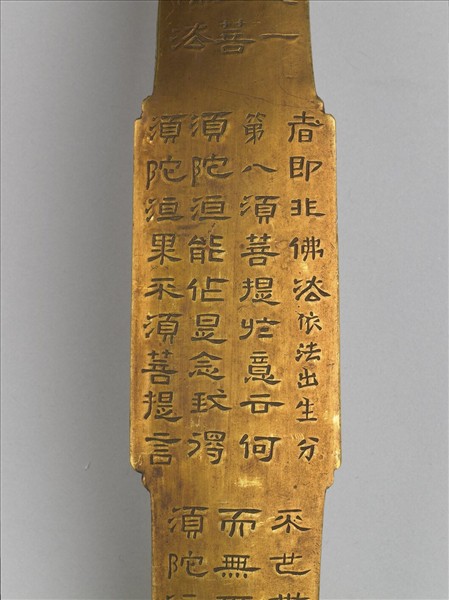 一
菩
法
者即非佛法依法出生分
第八須菩提扵意云何
須陀洹能作是念我得
須陀洹果不須菩提言
不世
而無
須陀